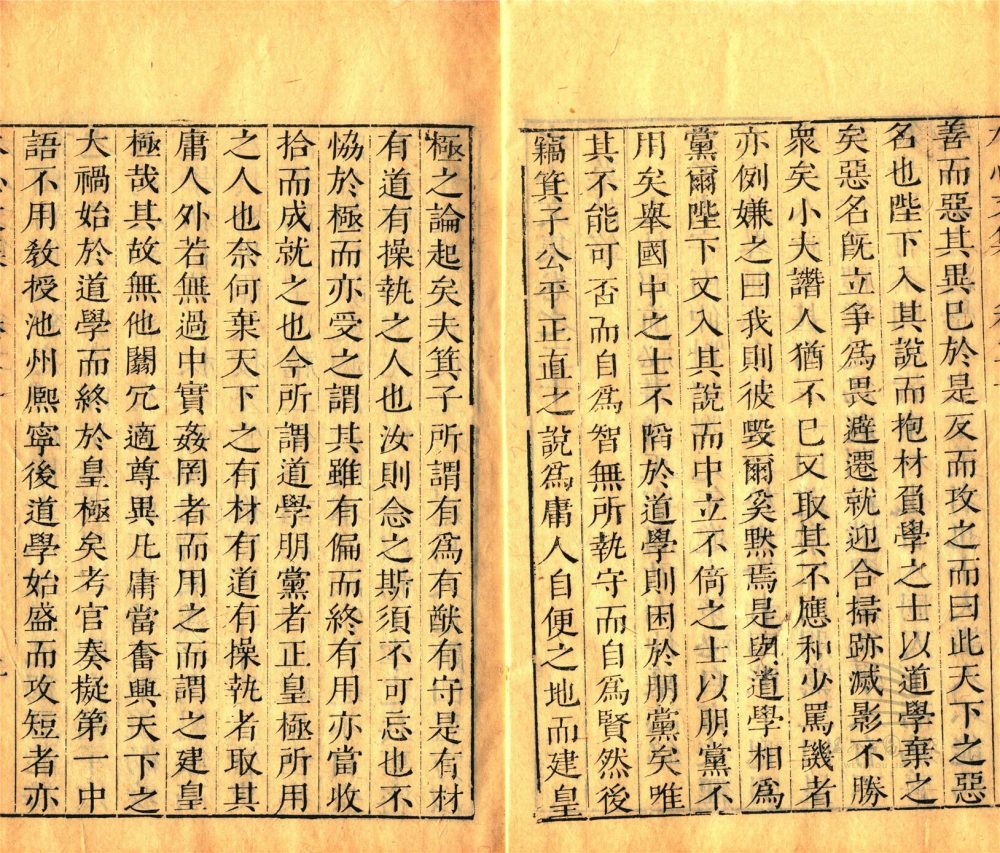 善而惡其異已於是反而攻之而曰此天下之惡
名也陛下入其說而抱材負學之士以道學棄之
矣惡名旣立爭爲畏避遷就迎合掃跡滅影不勝
衆矣小夫譖人猶不已又取其不應和少罵譏者
亦例嫌之曰我則彼毀爾奚黙焉是與道學相爲
黨爾陛下又入其說而中立不倚之士以朋黨不
用矣舉國中之士不䧟於道學則困於朋黨矣唯
其不能可否而自爲智無所執守而自爲賢然後
竊箕子公平正直之說爲庸人自便之地而建皇
極之論起矣夫箕子所謂有爲有猷有守是有材
有道有操執之人也汝則念之斯須不可忘也不
恊於極而亦受之謂其雖有偏而終有用亦當收
拾而成就之也今所謂道學朋黨者正皇極所用
之人也奈何棄天下之有材有道有操執者取其
庸人外若無過中實姦罔者而用之而謂之建皇
極哉其故無他闒冗適尊異凡庸當奮興天下之
大禍始於道學而終於皇極矣考官奏擬第一中
語不用敎授池州熈寧後道學始盛而攻短者亦